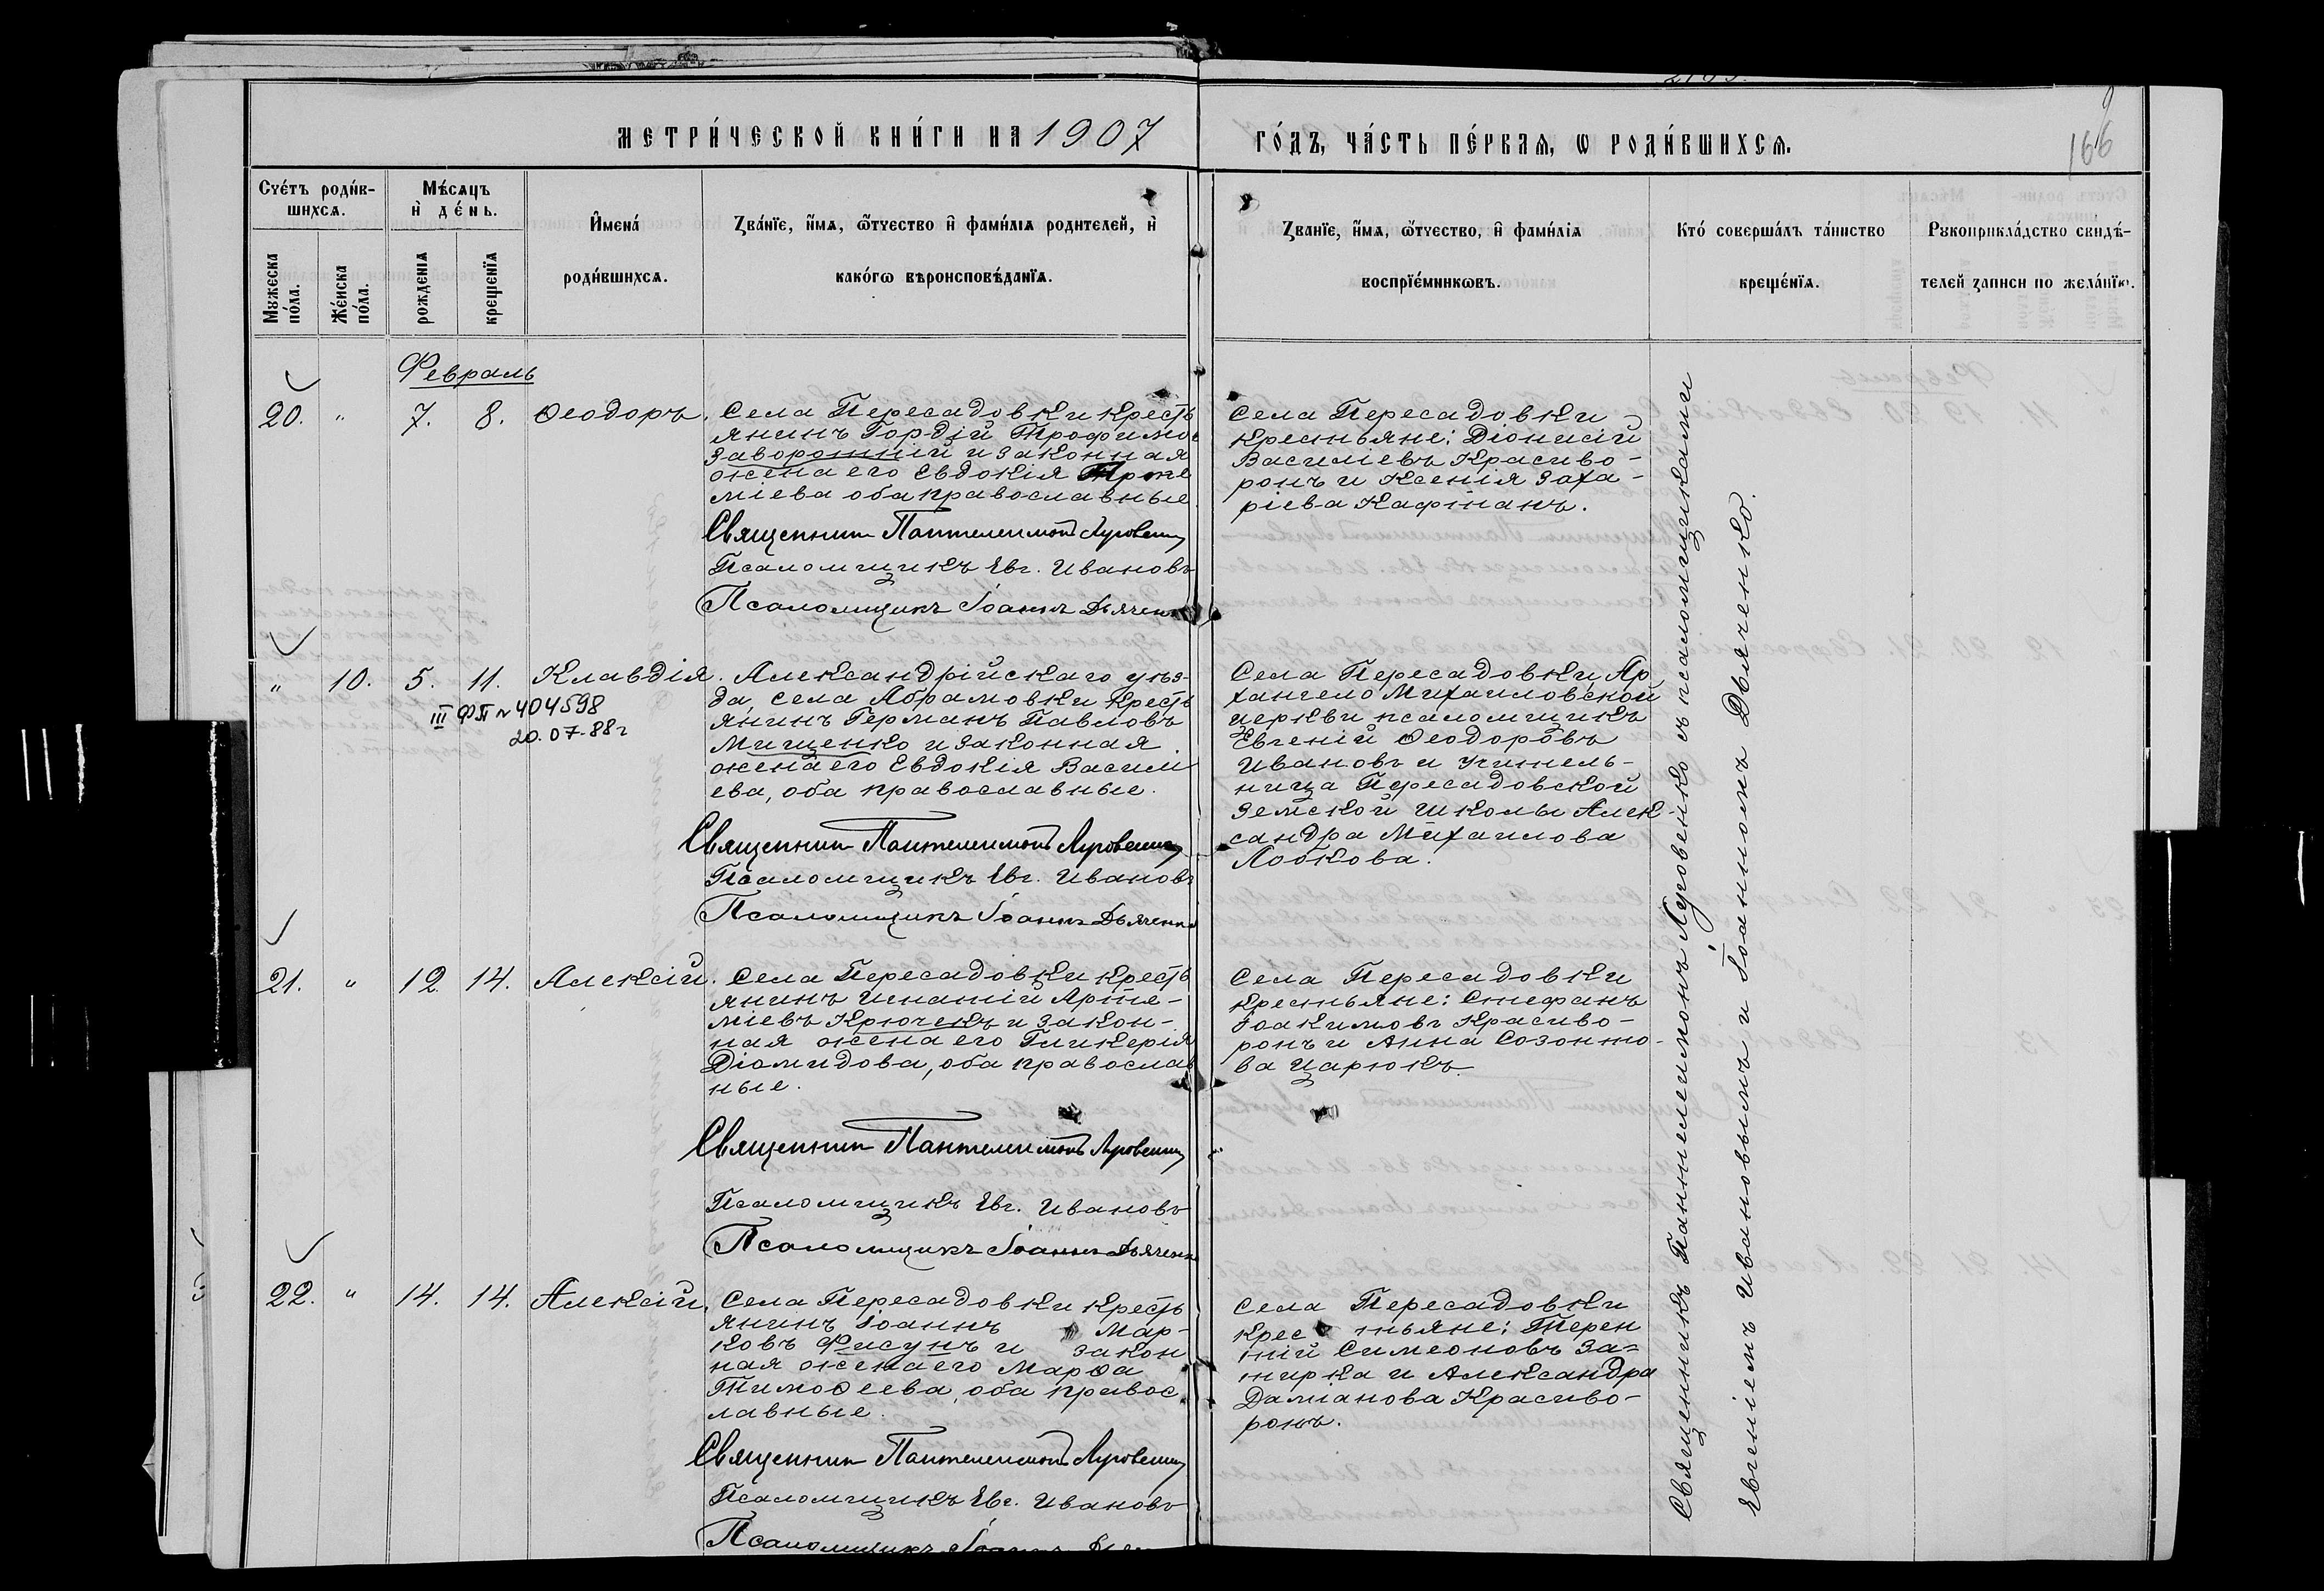 МЕТРИ́ЧЕСКОЙ КНИ́ГИ НА 1907
ГО́ДЪ, ЧА́СТЬ ПЕ́РВАѦ, Ѡ РОДИ́ВШИХСѦ.
166
Счéтъ роди́в-
шихсѧ.
Мѣ́сѧцъ
и҆ де́нь.
Мꙋжеска
по́ла.
Же́нска
по́ла.
рожденїѧ
крещенїѧ
И҆мена́
роди́вшихсѧ.
Зва́нїе, и҆́мѧ, ѻ҆́тчество и҆ фами́лїѧ родителей, и҆
како́гѡ вѣроисповѣ́данїѧ.
Званїе, и҆́мѧ, ѻ҆́тчество, и҆ фами́лїѧ
воспрїе́мникѡвъ.
Кто̀ соверша́лъ та́инство
креще́нїѧ.
Рꙋкоприкла́дство свидѣ́-
телей записи по жела́нїю.
Февраль
20. " 7. 8. Ѳеодоръ.
Села Пересадовки кресть
янинъ Гордій Трофимов
Заворотній и законная
жена его Евдокія
міева оба православные
Священник Пантелеимонъ Луговенко
Псаломщикъ Евг. Ивановъ
Псаломщикъ Іоаннъ Дьяченко
Села Пересадовки
крестьяне: Діонисій
Василіевъ Красиво-
ронъ и Ксенія Заха-
ріева Кафтанъ.
" 10. 5. 11. Клавдія.
III ФП № 404598
20.07.88г
Александрійскаго уѣз-
да, села Абрамовки кресть
янинъ Германъ Павловъ
Мищенко и законная
жена его Евдокія Васили
ева, оба православные.
Священник Пантелеимонъ Луговенко
Псаломщикъ Евг. Ивановъ
Псаломщикъ Іоаннъ Дьяченко
Села Пересадовки, Ар
хангело Михаиловской
церкви псаломщикъ
Евгеній Ѳеодоровъ
Ивановъ и учитель-
ница Пересадовской
Земской школы Алек-
сандра Михаилова
Лобкова.
21. " 12 14. Алексій.
Села Пересадовки кресть
янинъ Игнатій Арте-
міевъ Крючекъ и закон-
ная жена его Гликерія
Діомидова, оба православ
ные.
Священник Пантелеимонъ Луговенко
Псаломщикъ Евг. Ивановъ
Псаломщикъ Іоаннъ Дьяченко
Села Пересадовки
крестьяне: Стефанъ
Іоакимовъ Красиво-
ронъ и Анна Созонто-
ва Царюкъ.
22. " 14. 14. Алексій.
Села Пересадовки кресть
янинъ Іоаннъ Мар-
ковъ Фисунъ и закон
ная жена его Марѳа
Тимоѳеева, оба правос
лавные.
Священник Пантелеимонъ Луговенко
Псаломщикъ Евг. Ивановъ
Псаломщикъ Іоаннъ
Села Пересадовки
крес тьяне: Терен
тій Симеоновъ За-
тирка и Александра
Даміанова Красиво-
ронъ.
Священникъ Пантелеимонъ Луговенко съ псаломщиками
Евгеніемъ Ивановымъ и Іоанномъ Дьяченко.